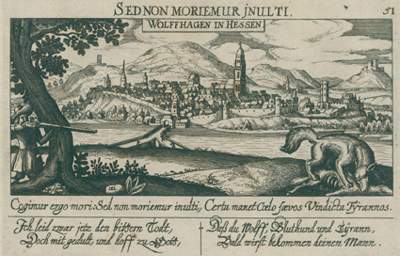 SED NON MORIEMUR JNULTI.
WOLFFHAGEN IN HESSEN
51
Cogimur ergo mori: Sed non moriemur inulti, Certu manet Cœlo sævos Vindicta Tyrannos.
Ich leid zwar jetz den bittern Todt,
Doch mit gedult, und hoff zu Gott,
Daß du Wolff, Bluthund und Tÿrann,
Bald wirst bekommen deinen Mann.